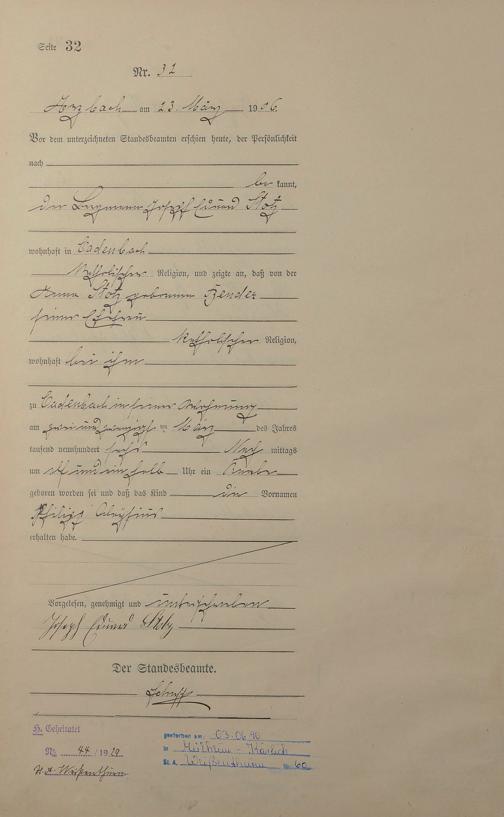 Seite 32
Nr. 32
Arzbach am 23. März 1906.
Vor dem unterzeichneten Standesbeamten erschien heute, der Persönlichkeit
nach
bekannt,
der Bergmann Joseph Eduard Stotz
wohnhaft in Cadenbach
katholischer Religion, und zeigte an, daß von der
Anna Stotz geborenen Bender
seiner Ehefrau
katholischer Religion,
wohnhaft bei ihm
zu Cadenbach in seiner Wohnung
am zwei und zwanzigsten März des Jahres
tausend neunhundert sechs Nachmittags
um elf und einhalb Uhr ein Knabe
geboren worden sei und daß das Kind die Vornamen
Philipp Aloysius
erhalten habe.
Vorgelesen, genehmigt und unterschrieben
Joseph Eduard Stotz
Der Standesbeamte.
H. Geheiratet
Nr. 44 / 1929
St. A. Weißenthurm
gestorben am: 03.06.90
in Mülheim-Kärlich
St. A. Weißenthurm Nr. 60